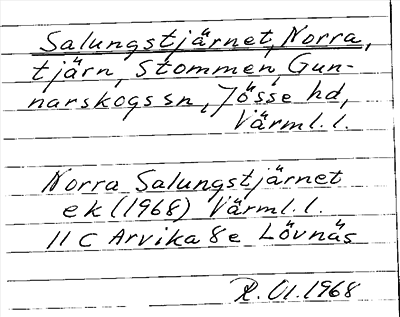 Salungstjärnet, Norra,
tjärn, Stommen, Gun-
narskogs sn, Jösse hd,
Värml. l.
Norra Salungstjärnet
ek (1968) Värml. l.
11 C Arvika 8 e Lövnäs
R. Ol. 1968